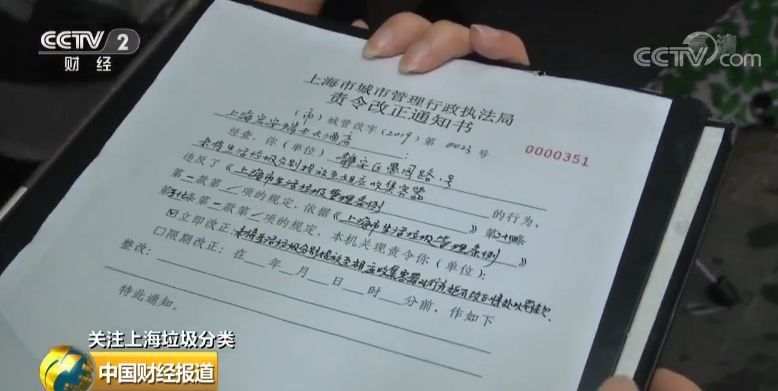 CCTV 2
财经
CCTV.com
上海市城市管理行政执法局
责令改正通知书
(市)城管改字(2019)第0023号
0000351
上海
大酒店:
经查,你(单位)静安区愚园路 号
未将生活垃圾分别投放至相应收集容器 的行为,
违反了《上海市生活垃圾管理条例》第二十四条
第一款第/项的规定,依据《上海市生活垃圾管理条例》
第一款第/项的规定,本机关现责令你(单位):
立即改正:未将生活垃圾分别投放至相应收集容器
口限期改正:在 年 月 日 时 分前,作如下
整改:
特此通知。
关注上海垃圾分类
中国财经报道